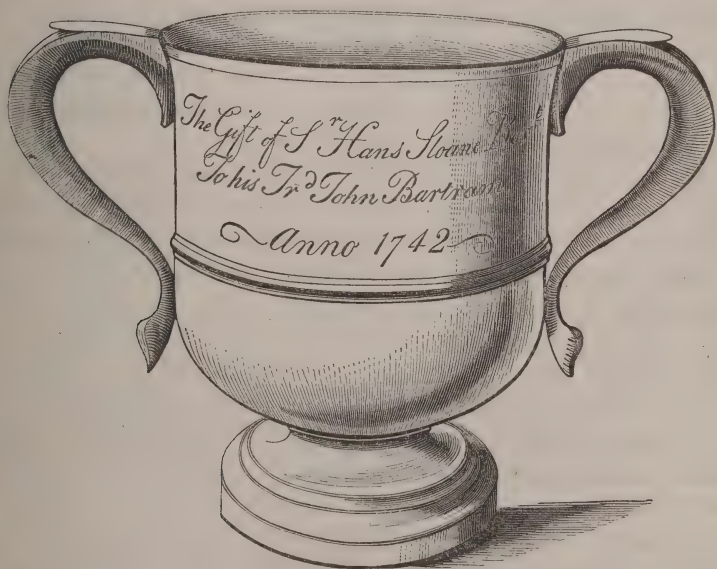 The Gift of Sʳ Hans Sloane
To his Frᵈ John Bartram
Anno 1742